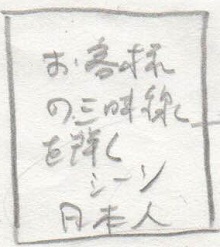 お客様
の三味線
を弾く
シーン
日本人